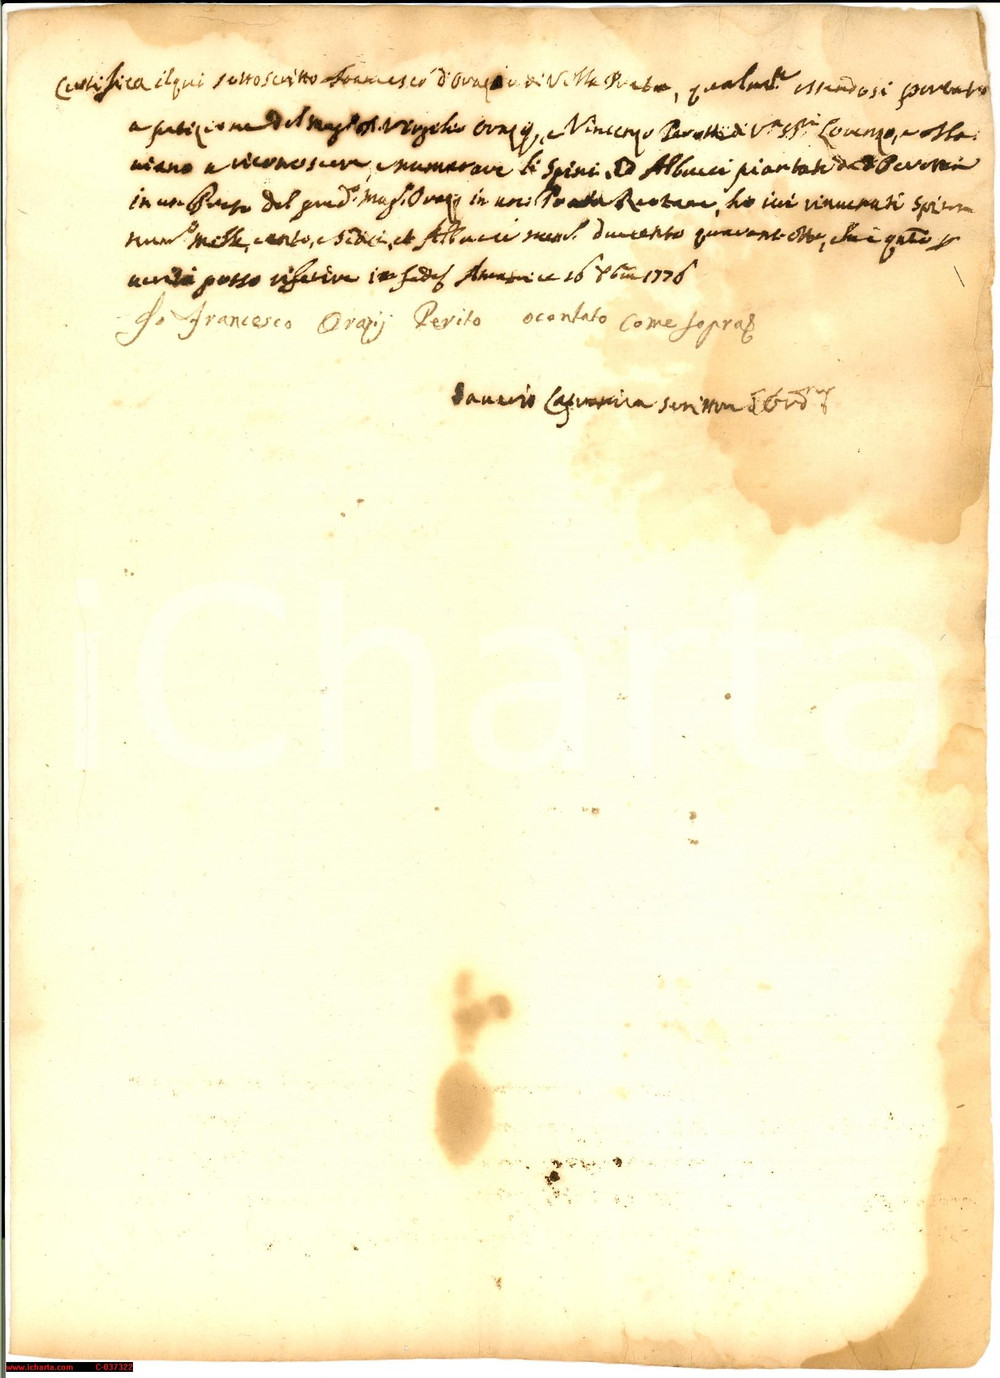 Certifica il qui sottoscritto Francesco d'Orazio di Villa Prata, qualmte essendosi portato
a petizione del Magco Virgilio Orazj, e Vincenzo Perotti di Lorenzo, e
a riconoscere, e numerare li Spini, ed Albucci piantati da Perotti
in un Pezzo del predo Mago Orazj in una ho ivi rinvenuti Spini
numo mille, cento, e sedici, et Albucci numo duecento quarant'otto, che è quto p
verità posso riferire in fede Amatrice 16 Xbre 1776
Io Francesco Orazij Perito ocontato come sopra
scrittore
iCharta
www.icharta.com C-037322